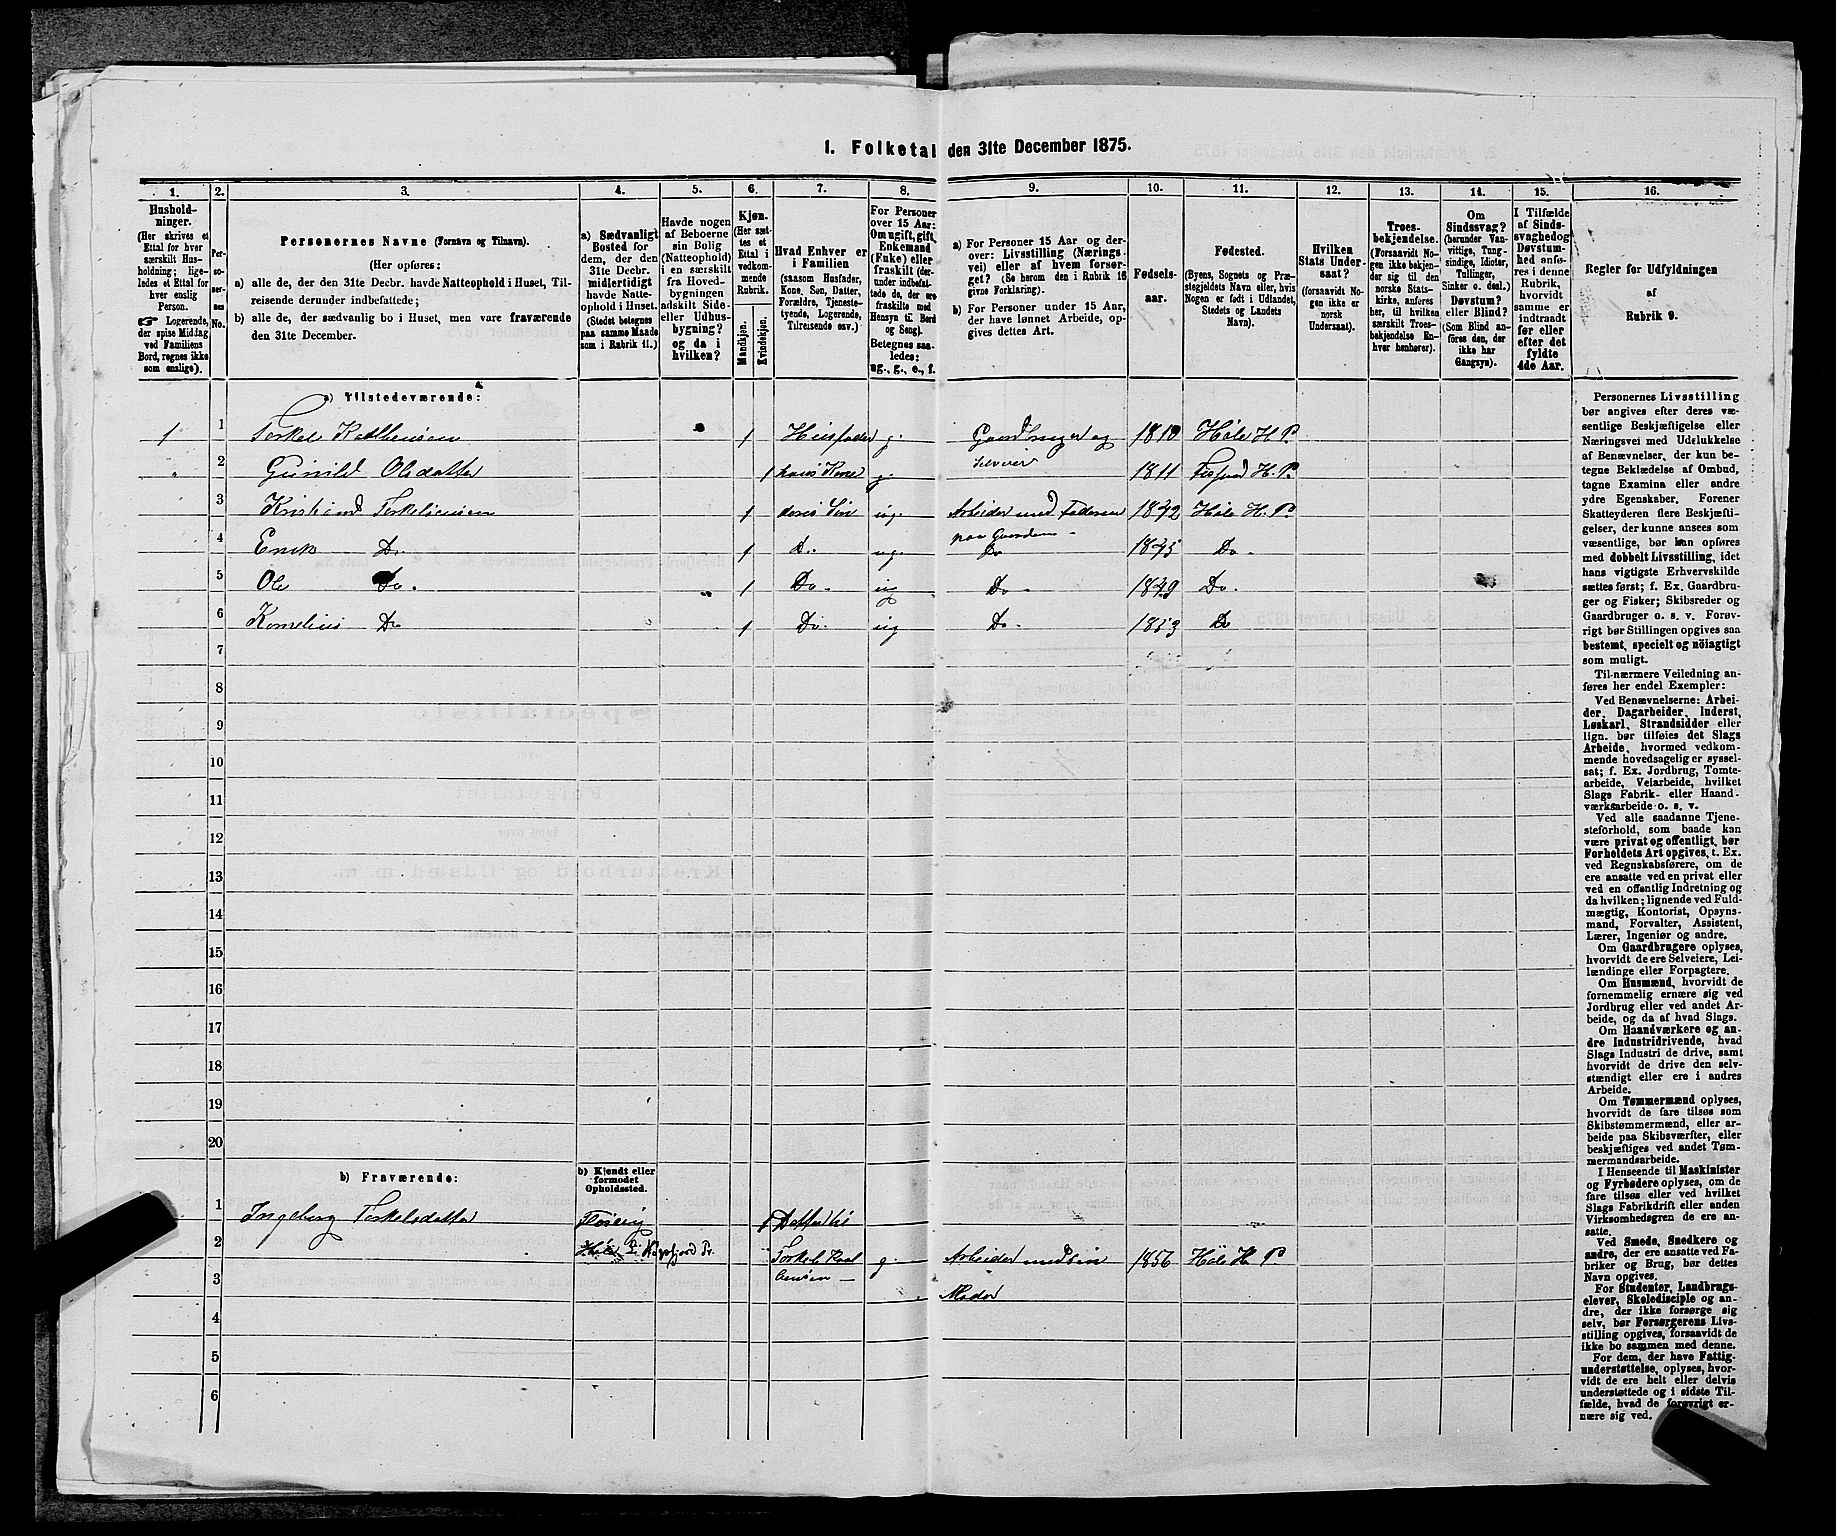 1. Folketal den 31te December 1875.
1. 2. 3. 4. 5. 6. 7. 8. 9. 10. 11. 12. 13. 14. 15. 16.
Hushold-
ninger.
(Her skrives et
Ettal for hver
særskilt Hus-
holdning; lige-
ledes et Ettal for
hver enslig
Person.
Logerende,
der spise Middag
ved Familiens
Bord, regnes ikke
som enslige).
Per-
so-
ner-
nes
No.
Personernes Navne (Fornavn og Tilnavn).
(Her opføres:
a) alle de, der den 31te Decbr. havde Natteophold i Huset, Til-
reisende derunder indbefattede;
b) alle de, der sædvanlig bo i Huset, men vare fraværende
den 31te December.
a) Sædvanligt
Bosted for
dem, der den
31te Decbr.
midlertidigt
havde Natte-
ophold i Huset.
(Stedet betegnes
paa samme Maade
som i Rubrik 11.)
Havde nogen
af Beboerne
sin Bolig
(Natteophold)
i en særskilt
fra Hoved-
bygningen
adskilt Side-
eller Udhus-
bygning?
og da i
hvilken?
Kjøn.
(Her sæt-
tes et
Ettal i
vedkom-
mende
Rubrik.
Mandkjøn.
Kvindekjøn.
Hvad Enhver er
i Familien
(saasom Husfader,
Kone, Søn, Datter,
Forældre, Tjeneste-
tyende, Logerende,
Tilreisende osv.)
For Personer
over 15 Aar:
Om ugift, gift,
Enkemand
(Enke) eller
fraskilt (der-
under indbefat-
tede de, der ere
fraskilte med
Hensyn til Bord
og Seng).
Betegnes saa-
ledes:
ug., g., e., f.
a) For Personer 15 Aar og der-
over: Livsstilling (Nærings-
vei) eller af hvem forsør-
get? (Se herom den i Rubrik 16
givne Forklaring).
b) For Personer under 15 Aar,
der have lønnet Arbeide, op-
gives dettes Art.
Fødsels-
aar.
Fødested.
(Byens, Sognets og Præ-
stegjeldets Navn eller, hvis
Nogen er født i Udlandet,
Stedets og Landets
Navn).
Hvilken
Stats Under-
saat?
(forsaavidt No-
gen ikke er
norsk
Undersaat).
Troes-
bekjendelse.
(Forsaavidt No-
gen ikke bekjen-
der sig til den
norske Stats-
kirke, anføres
her, til hvilken
særskilt Troes-
bekjendelse En-
hver henhører).
Om
Sindssvag?
(herunder Van-
vittige, Tung-
sindige, Idioter,
Tullinger,
Sinker o. desl.)
Døvstum?
eller Blind?
(Som Blind an-
føres den, der
ikke har
Gangsyn).
I Tilfælde
af Sinds-
svaghed og
Døvstum-
hed anfø-
res i denne
Rubrik,
hvorvidt
samme er
indtraadt
før eller
efter det
fyldte
4de Aar.
Regler for Udfyldningen
af
Rubrik 9.
a) Tilstedeværende:
1 1 Torkel 1 Husfader g. Gaardbruger og 1810 Høle H. P.
Selveier
" 2 Gunild Olsdatter 1 hans Kone g. 1811 H. P.
3 Kristian 1 deres Søn ug. Arbeider med Faderen 1842 Høle H. P.
paa Gaarden
4 Erik Do. 1 Do. ug. Do 1845 Do.
5 Ole Do. 1 Do. ug Do. 1849 Do.
6 Kornelius Do 1 Do. ug Do. 1853 Do
7
8
9
10
11
12
13
14
15
16
17
18
19
20
b) Fraværende:
b) Kjendt eller
formodet
Opholdssted.
1 Ingeborg Torkelsdatter 1 Datter til
2 Torkel g. Arbeider med sin 1856 Høle H. P.
3 Moder
4
5
6
Personernes Livsstilling
bør angives efter deres væ-
sentlige Beskjæftigelse eller
Næringsvei med Udelukkelse
af Benævnelser, der kun be-
tegne Beklædelse af Ombud,
tagne Examina eller andre
ydre Egenskaber. Forener
Skatteyderen flere Beskjæfti-
gelser, der kunne ansees som
væsentlige, bør han opføres
med dobbelt Livsstilling, idet
hans vigtigste Erhvervskilde
sættes først; f. Ex. Gaardbru-
ger og Fisker; Skibsreder og
Gaardbruger o. s. v. Forøv-
rigt bør Stillingen opgives saa
bestemt, specielt og nöiagtigt
som muligt.
Til nærmere Veiledning an-
føres her endel Exempler:
Ved Benævnelserne: Arbei-
der, Dagarbeider, Inderst,
Løskarl, Strandsidder eller
lign. bør tilføies det Slags
Arbeide, hvormed vedkom-
mende hovedsagelig er syssel-
sat; f. Ex. Jordbrug, Tomte-
arbeide, Veiarbeide, hvilket
Slags Fabrik- eller Haand-
værksarbeide o. s. v.
Ved alle saadanne Tjene-
steforhold, som baade kan
være privat og offentligt, bør
Forholdets Art opgives, t. Ex.
ved Regnskabsførere, om de
ere ansatte ved en privat eller
ved en offentlig Indretning og
da hvilken; lignende ved Fuld-
mægtig, Kontorist, Opsyns-
mand, Forvalter, Assistent,
Lærer, Ingeniør og andre.
Om Gaardbrugere oplyses,
hvorvidt de ere Selveiere, Lei-
lændinge eller Forpagtere.
Om Husmænd, hvorvidt de
fornemmelig ernære sig ved
Jordbrug eller ved andet Ar-
beide, og da af hvad Slags.
Om Haandværkere og an-
dre Industridrivende, hvad
Slags Industri de drive, samt
hvorvidt de drive den selv-
stændigt eller ere i andres
Arbeide.
Om Tømmermænd oplyses,
hvorvidt de fare tilsøs som
Skibstømmermænd, eller ar-
beide paa Skibsværfter, eller
beskjæftiges ved andet Tøm-
mermandsarbeide.
I Henseende til Maskinister
og Fyrbødere oplyses, om de
fare tilsøs eller ved hvilket
Slags Fabrikdrift eller anden
Virksomhed de ere an-
satte.
Ved Smede, Snedkere og
andre, der ere ansatte ved Fa-
briker og Brug, bør dettes
Navn opgives.
For Studenter, Landbrugs-
elever, Skoledisciple og an-
dre, der ikke forsørge sig
selv, bør Forsørgerens Livs-
stilling opgives, forsaavidt de
ikke bo sammen med denne.
For dem, der have Fattig-
understøttelse, oplyses, hvor-
vidt de ere helt eller delvis
understøttede og i sidste Til-
fælde, hvad de forøvrigt er-
nære sig ved.